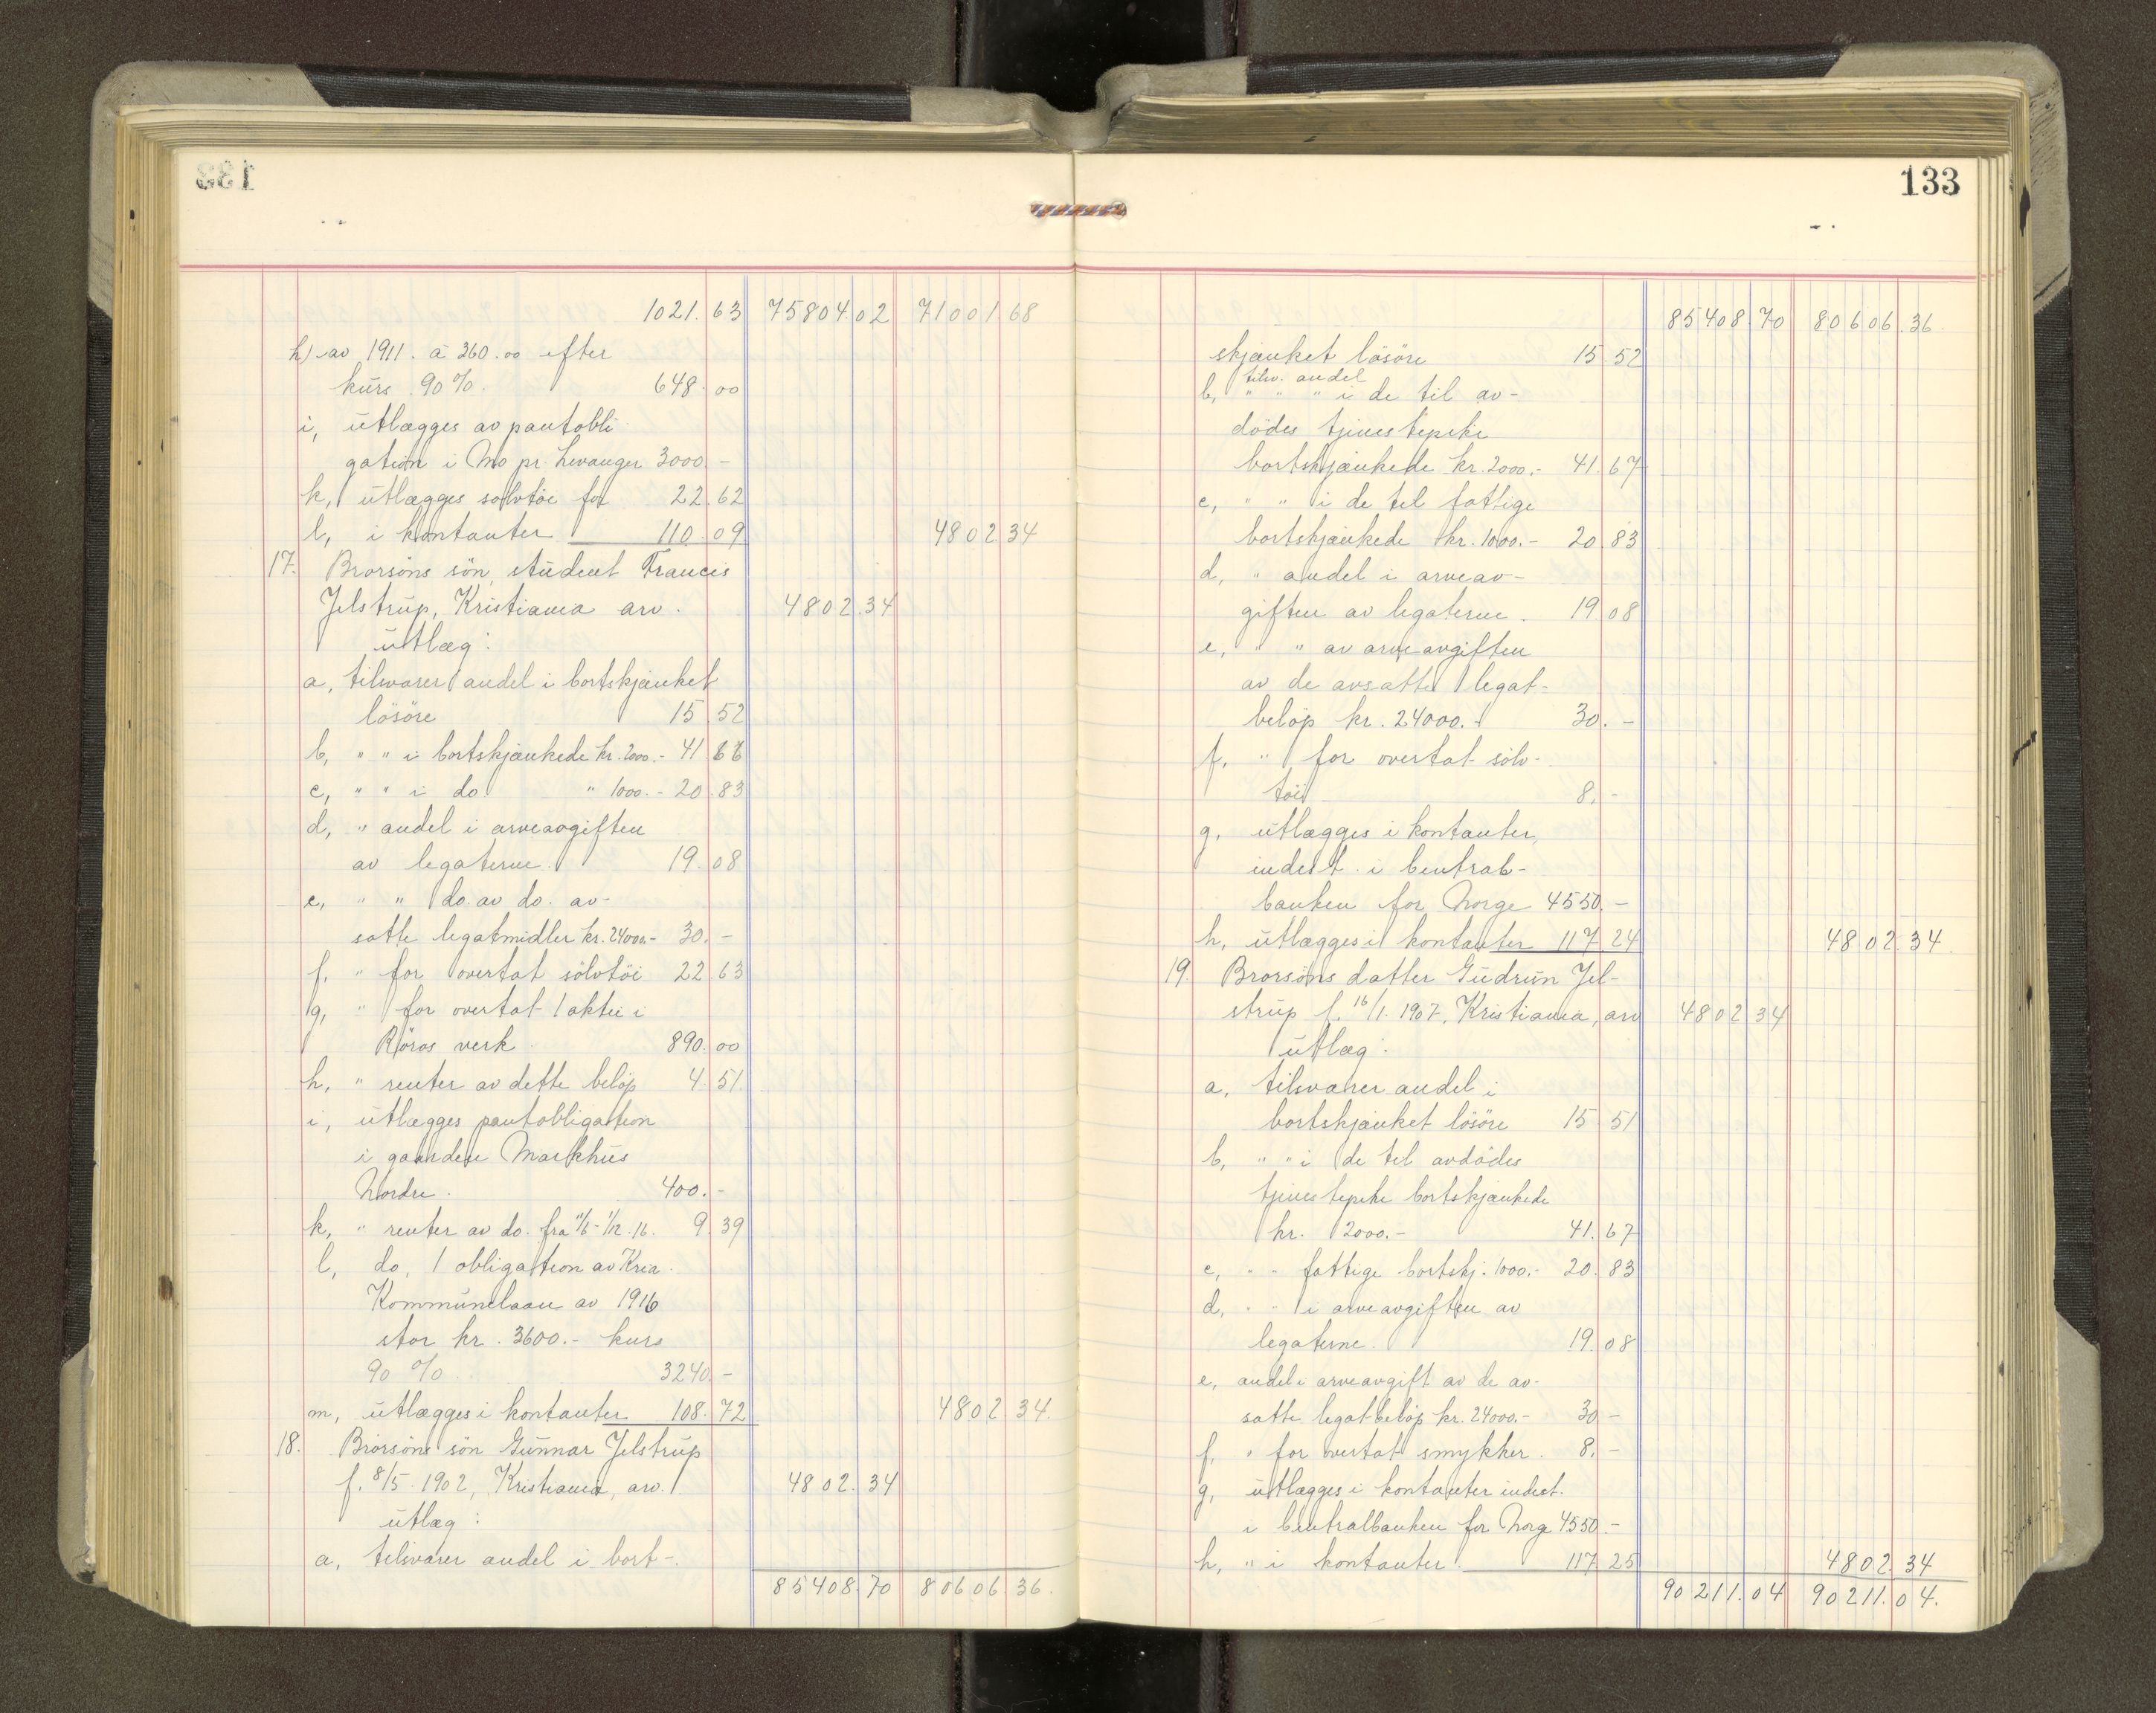 133
1021.63 75804.02 71001.68
h) av 1911. á 360.00 efter
kurs 90%. 648.00
i, utlægges av pantobli
gation i Mo pr. Levanger 3000.-
k, utlægges sølvtøi for 22.62
l, i kontanter 110.09 4802.34
17. Brorsöns sön, student Francis
Jelstrup, Kristiania arv. 4802.34
utlæg:
a, tilsvarer andel i bortskjænket
lösöre 15.52
b, " " i bortskjænkede kr. 2000.- 41.66
c, " " i do. " 1000.- 20.83
d, " andel i arveavgiften
av legaterne 19.08
e, " " do. av do. av-
satte legatmidler kr. 24000.- 30.-
f. " for overtat sölvtöi 22.63
g, " for overtat 1 aktie i
Röros verk 890.00
h, " renter av dette belöp 4.51
i, utlægges pantobligation
i gaarden Markhus
Nordre. 400.-
k, " renter av do. fra 11/6-1/12.16. 9.39
l, do. 1 obligation av Kria.
Kommunelaan av 1916
stor kr. 3600.- kurs
90 % 3240.-
m, utlægges i kontanter 108.72 4802.34.
18. Brorsöns sön Gunnar Jelstrup
f. 8/5 1902, Kristiania, arv. 4802.34
utlæg:
a, tilsvarer andel i bort-.
85408.70 80606.36.
133
85408.70 80606.36.
skjænket lösöre 15.52
tilsv. andel
b, " " " i de til av-
dödes tjenestepike
bortskjænkede kr. 2000.- 41.67
c, " " i de til fattige
bortskjænkede kr. 1000.- 20.83
d, " andel i arveav-
giften av legaterne. 19.08
e, " " av arveavgiften
av de avsatte legat-
belöp kr. 24000.- 30.-
f, " for overtat sölv-
töi 8.-
g, utlægges i kontanter,
indest. i Central-
banken for Norge 4550.-
h, utlægges i kontanter 117.24 4802.34.
19. Brorsöns datter Gudrun Jel-
strup f. 16/1. 1907, Kristiania, arv 4802.34
utlæg:
a, tilsvarer andel i
bortskjænket lösöre 15.51
b, " " i de til avdödes
tjenestepike bortskjænkede
kr. 2000.- 41.67
c, " " fattige bortskj. 1000.- 20.83
d, " " i arveavgiften av
legaterne. 19.08
e, andel i arveavgift av de av-
satte legatbelöp kr. 24000.- 30.-
f, " for overtat smykker. 8.-
g, utlægges i kontanter indest.
i Centralbanken for Norg 4550.-
h, " i kontanter 117.25 4802.34
90211.04 90211.04.